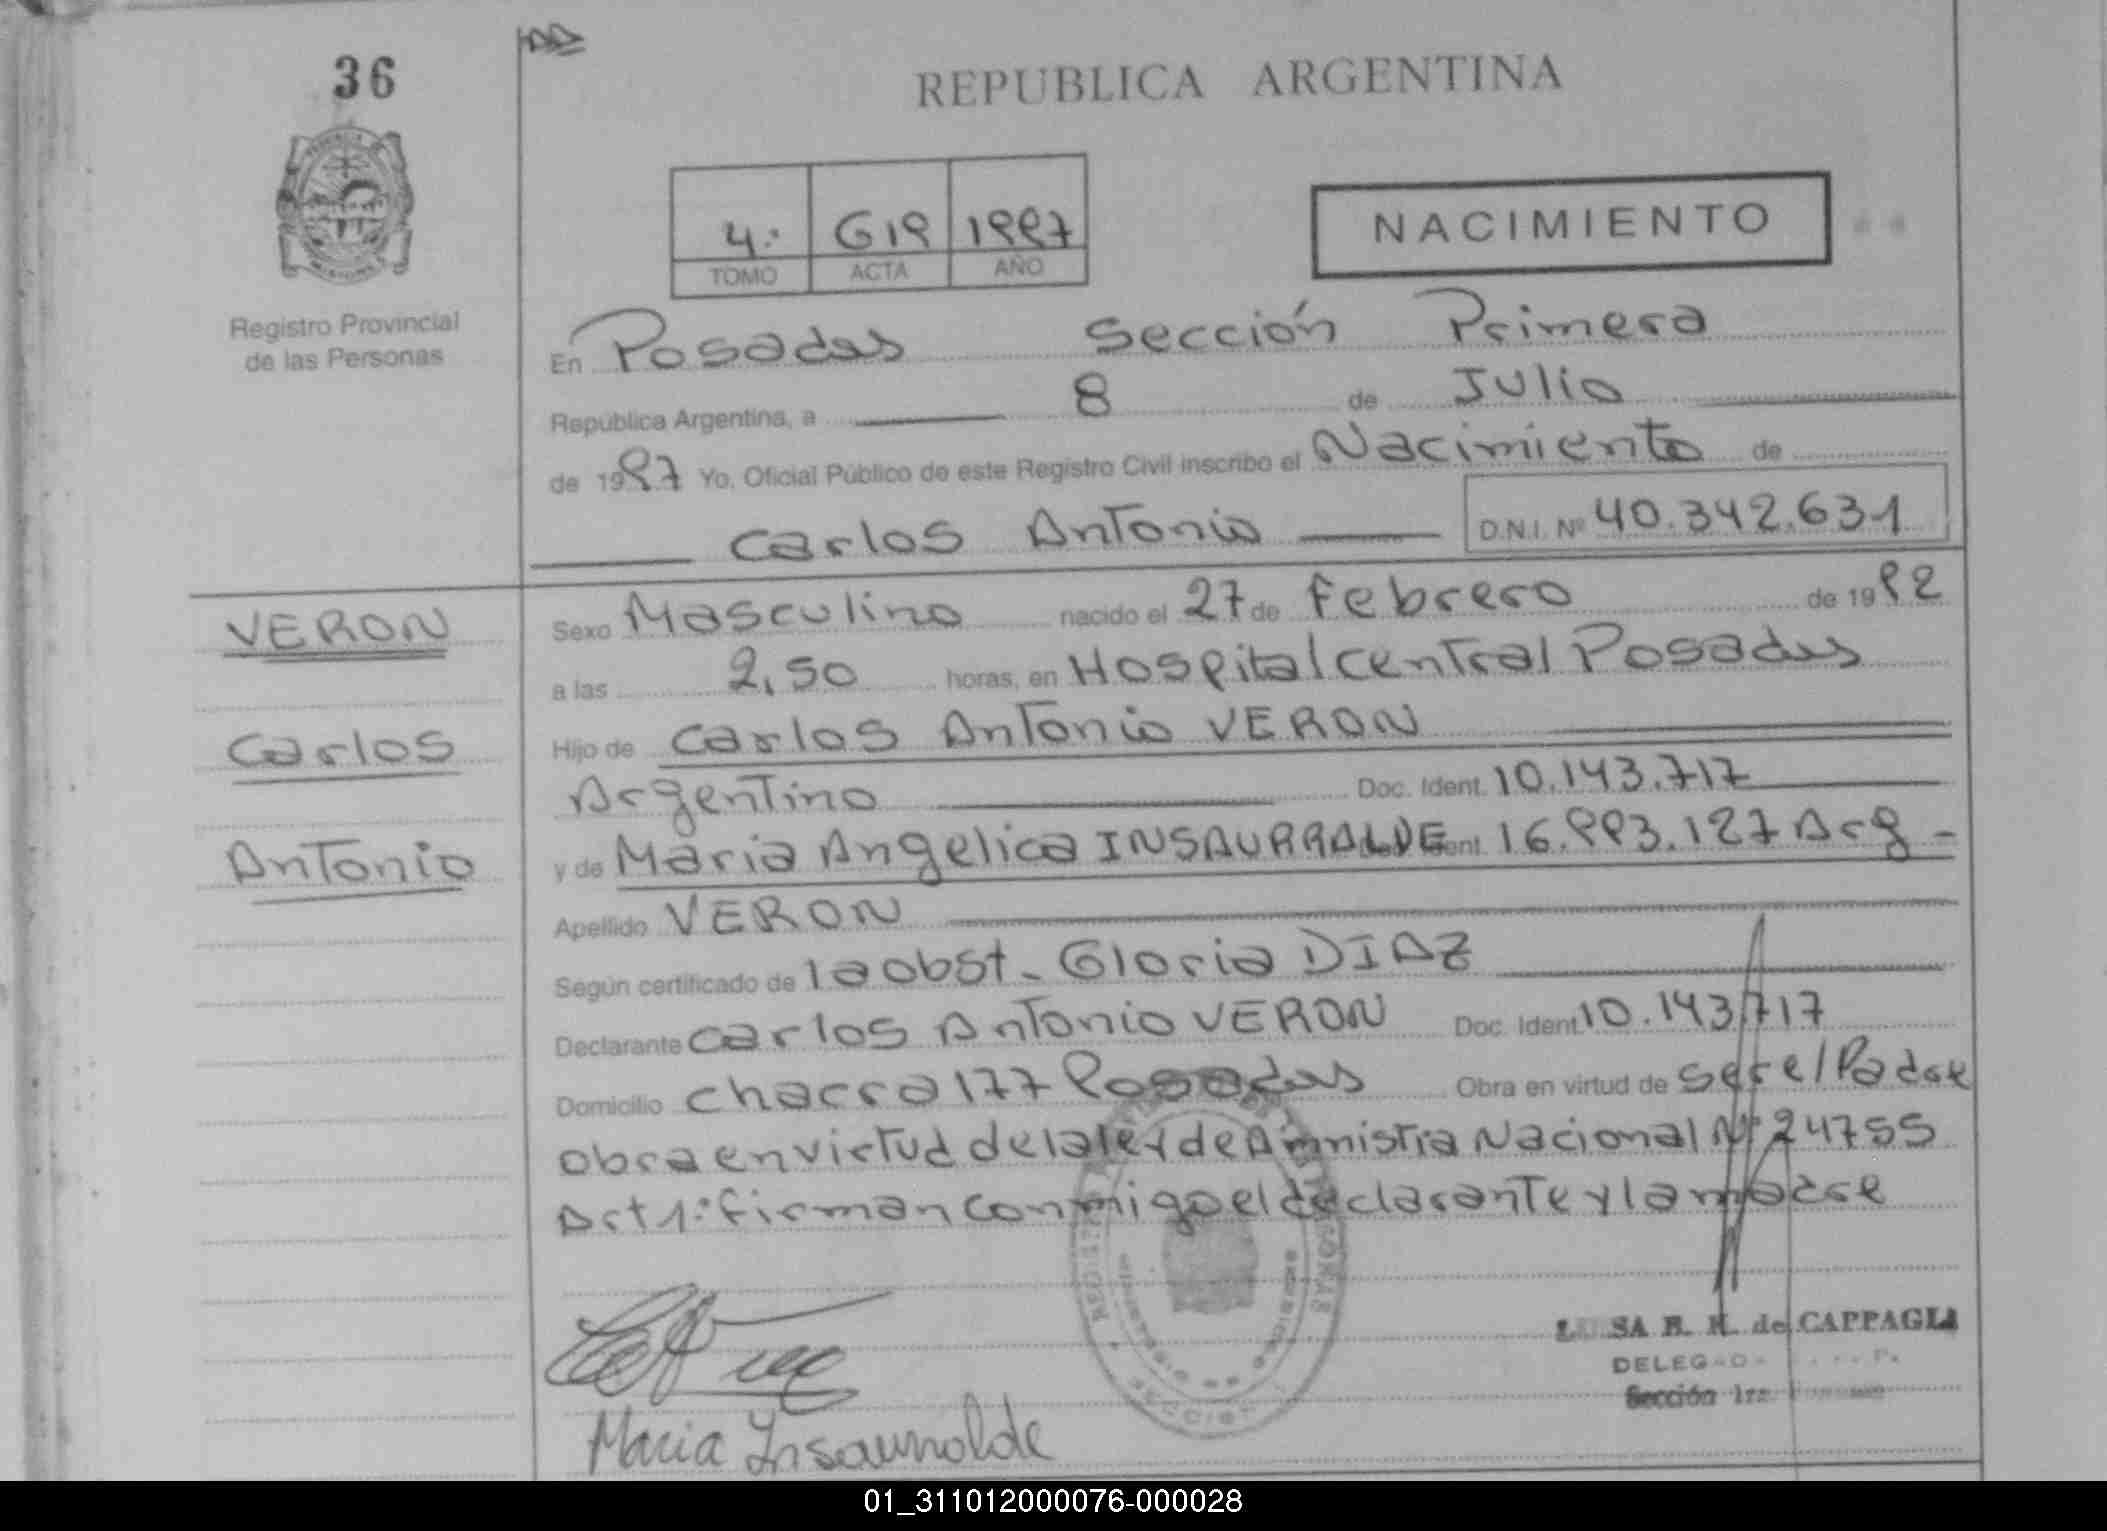 36
REPUBLICA ARGENTINA
4º 619 1997
TOMO ACTA AÑO
NACIMIENTO
Registro Provincial
de las Personas
En Posadas Sección Primera
República Argentina, a 8 de Julio
de 1997 Yo, Oficial Público de este Registro Civil inscribo el Nacimiento de
Carlos Antonio D.N.I. Nº 40.342.631
VERON
Carlos
Antonio
Sexo Masculino nacido el 27 de Febrero de 1992
a las 2,50 horas, en Hospital Central Posadas
Hijo de Carlos Antonio VERON
Argentino Doc. Ident. 10.143.717
y de Maria Angelica INSAURRALDE Ident. 16.993.127 Arg -
Apellido VERON
Según certificado de la obst. Gloria DIAZ
Declarante Carlos Antonio VERON Doc. Ident. 10.143.717
Domicilio Chacra 177 Posadas Obra en virtud de ser el Padre
obra en virtud de la ley de Amnistia Nacional Nº 24755
Art 1º: firman conmigo el declarante y la madre
Maria Insaurralde
LUISA B. R. de CAPPAGLI
Sección 1ra.
01_311012000076-000028